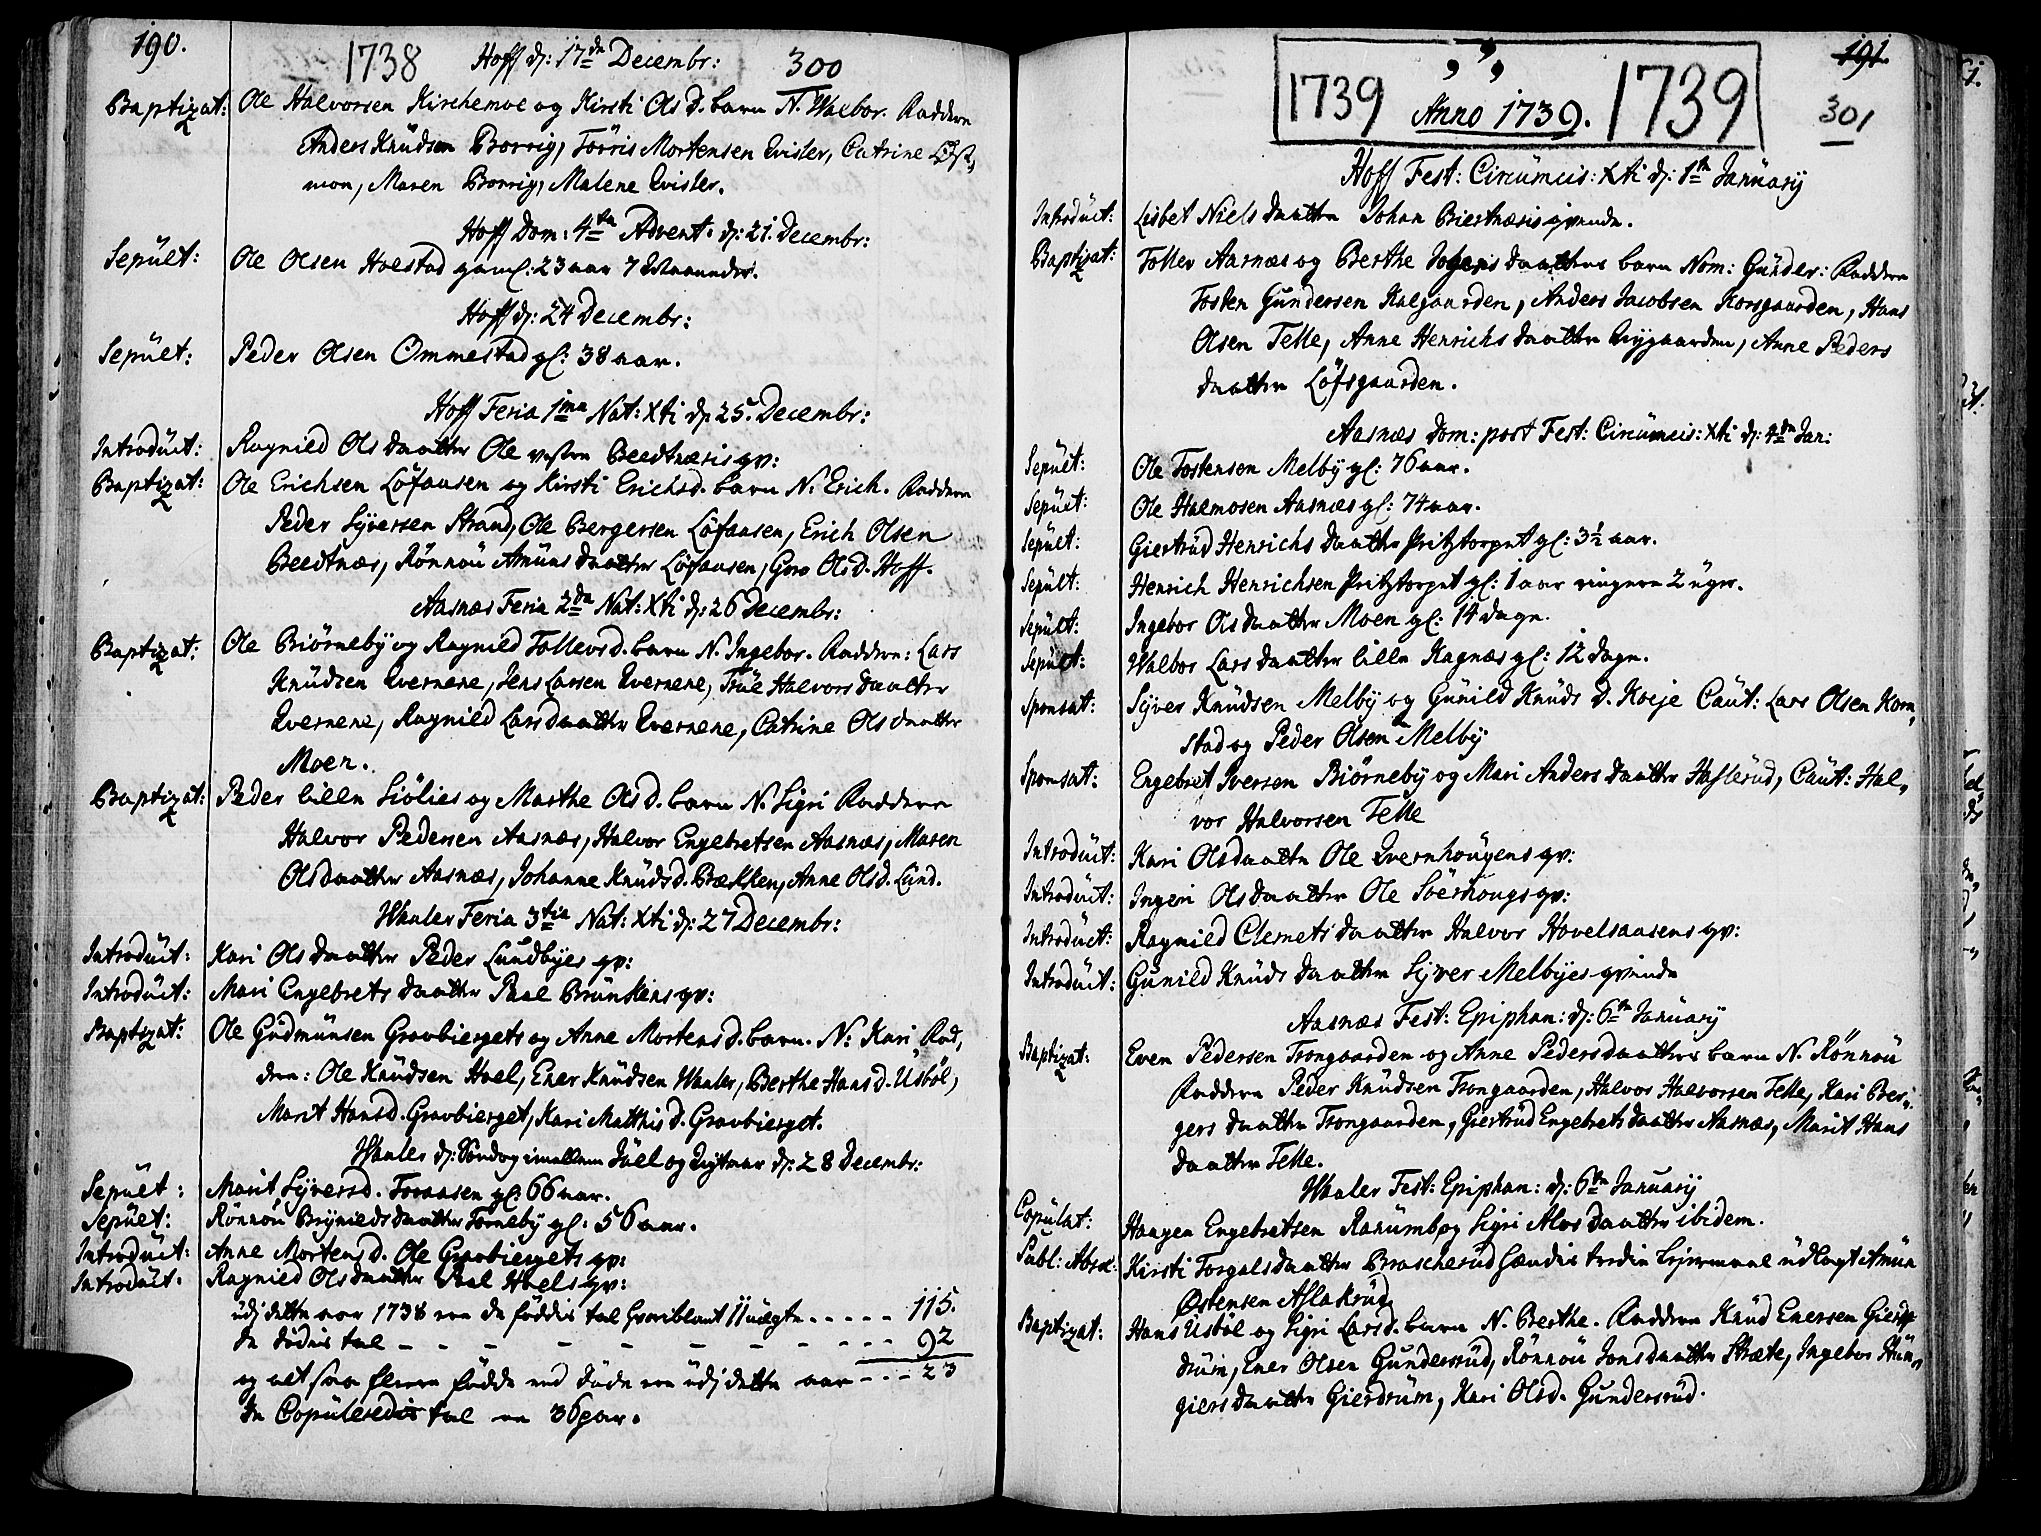 190.
1738 Hoff d: 17de Decembr: 300
Baptizat: Ole Halvorsen Kirchemoe og Kirsti Olsd. barn N. Walbor. Faddern
Anders Knüdsøn Borrig, Törris Mortensen Qvisler, Catrine
mon, Maren Borrig, Malene Qvisler.
Hoff Dom: 4ta Advent: d: 21. Decembr:
Sepult: Ole Olsen Hoelstad gaml: 23 aar 7 Maaneder.
Hoff d: 24 Decembr:
Sepült: Peder Olsen Ommestad gl: 38 aar.
Hoff Feria 1ma Nat: Xti d: 25. Decembr:
Introdüct: Ragnild Olsdaatter Ole vesten Beedtnæsis qv:
Baptizat: Ole Erichsen Löfaasen og Kirsti Erichsd. barn N. Erich. Faddern
Peder Syversen Strand, Ole Bergersen Löfaasen, Erich Olsen
Beedtnæs, Rönnou Amünsdaatter Löfaasen, Goro Olsd. Hoff.
Aasnæs Feria 2da Nat: Xti d: 26 Decembr:
Baptizat: Ole Biörneby og Ragnild Tollevsd. barn N. Ingebor. Faddern: Lars
Knüdsen Qvernene, Jens Larsen Qvernene, Trüe Halvorsdaatter
Qvernene, Ragnild Larsdaatter Qvernene, Catrine Olsdaatter
Moen.
Baptizat: Peder lille Siölies og Marthe Olsd. barn N. Sigri Faddern
Halvor Pedersen Aasnæs, Halvor Engebretsen Aasnæs, Maren
Olsdaatter Aasnæs, Johanne Knüdsd. Brekken, Anne Olsd. Lünd.
Waaler Feria 3tia Nat: Xti d: 27 Decembr:
Introdüct: Kari Olsdaatter Peder Lundbyes qv:
Introdüct: Mari Engebretsdaatter Paal Brünkens qv:
Baptizat: Ole Güdmünsen Gravbiergets og Anne Mortensd. barn. N: Kari Fad,
dern: Ole Knüdsen Hoel, Ener Knüdsen Waaler, Berthe Hansd. Usböl,
Marit Hansd. Gravbierget, Kari Matthisd. Gravbierget.
Waaler d: Söndag imellem Juel og Nytaar d: 28 Decembr:
Sepült: Marit Syversd. Toraasen gl: 66 aar.
Sepült: Rönnou Brynildsdaatter Torneby gl: 56 aar.
Introdüct: Anne Mortensd. Ole Gravbiergets qv:
Introdüct. Ragnild Olsdaatter Paal Hoels qv:
udj dette aar 1738 ere de föddis tal hvoriblant 11 uægte . . . . . 115.
De dödis tal - - - - - - - - - 92
og altsaa flere födde end döde ere udj dette aar - - - 23
De Copulertis tal er 36 par.
191.
1739 Anno 1739. 1739 301
Hoff Fest: Circumcis: Xti d: 1ste January
Introdüct: Lisbet Nielsdaatter Johan Biertnæsis qvinde.
Baptizat: Tollev Aasnæs og Berthe daatters barn Nom: Günder: Faddern
Tosten Gundersen Kalgaarden, Anders Jacobsen Korsgaarden, Hans
Olsen Telle, Anne Henrichsdaatter Nygaarden, Anne Peders
daatter Löfsgaarden.
Aasnæs Dom: post Fest: Circumcis: Xti d: 4de Jan:
Sepült: Ole Tostensøn Melby gl: 76 aar.
Sepült: Ole Halmosen Aasnæs gl: 74 aar.
Sepült: Giertrüd Henrichsdaatter Pritztorpet gl: 3½ aar.
Sepült: Henrich Henrichsen Pritztorpet gl: 1 aar ringere 2 uger.
Sepült: Ingebor Olsdaatter Moen gl: 14 dage.
Sepült: Walbor Larsdaatter lille Kagnæs gl: 12 dage.
Sponsat: Syver Knüdsen Melby og Günild Knüdsd. Koeje Caut: Lars Olsen Korn,
stad og Peder Olsen Melby
Sponsat: Engebret Iversen Biörneby og Mari Andersdaatter Haslerüd, Caut: Hal,
vor Halvorsen Telle
Introdüct: Kari Olsdaatter Ole Qvernhougens qv:
Introdüct: Ingeri Olsdaatter Ole Söerhougs qv:
Introdüct: Ragnild Clemetsdaatter Halvor Hovelsaasens qv:
Introdüct: Günild Knüdsdaatter Syver Melbyes qvinde
Aasnæs Fest: Epiphan: d: 6te January
Baptizat: Even Pedersen Trongaarden og Anne Pedersdaatters barn N. Rönnou
Faddern Peder Knüdsen Trongaarden, Halvor Halvorsen Telle, Kari Ber,
gersdaatter Trongaarden, Giertrüd Engebretsdaatter Aasnæs, Marit Hans
daatter Telle.
Waaler Fest: Epiphan: d: 6te January
Copulat: Haagen Engebretsen Ranum og Sigri Alvsdaatter ibidem.
Publ: Absol: Kirsti Torgalsdaatter Brascherüd hendis tredie Leiermaal udlagt Amün
Östensen Aslakrüd
Baptizat: Hans Usböl og Sigri Larsd. barn N. Berthe. Faddern Knüd Enersen Gier,
drüm, Ener Olsen Gündersrüd, Rönnou Jonsdaatter Stræte, Ingebor
giersdaatter Gierdrüm, Kari Olsd. Gündersrüd.